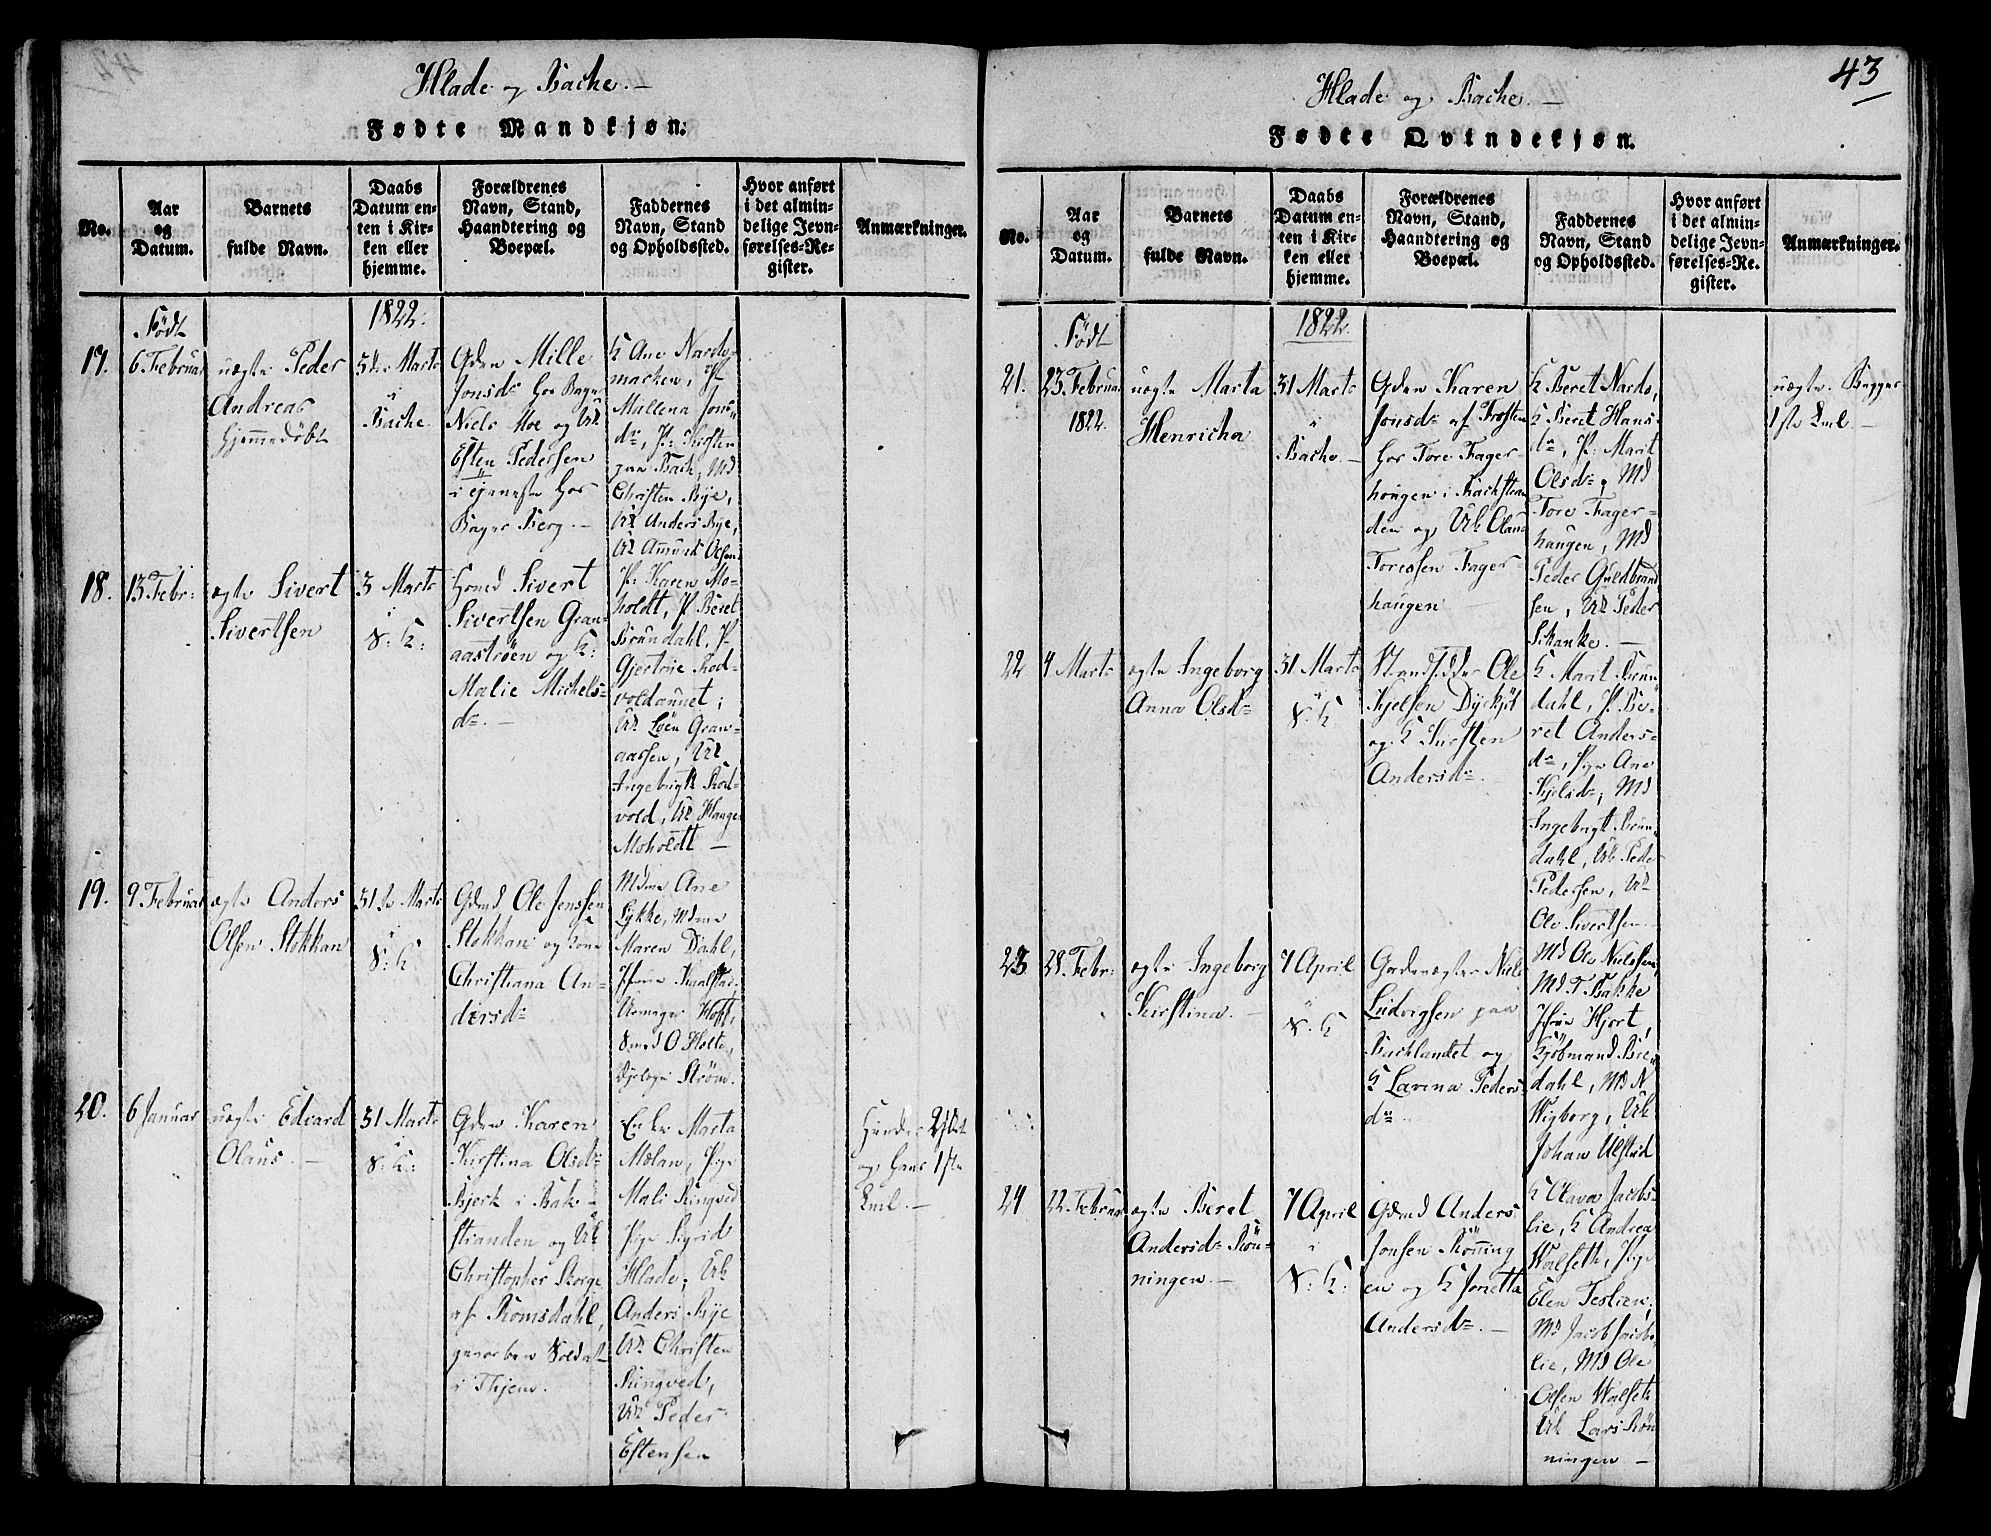 Hlade og Bache.
Fødte Mandkjøn.
No.
Aar
og
Datum.
Barnets
fulde Navn.
Daabs
Datum en-
ten i Kir-
ken eller
hjemme.
Forældrenes
Navn, Stand,
Haandtering og
Boepæl.
Faddernes
Navn, Stand
og Opholdssted.
Hvor anført
i det almin-
delige Jevn-
førelses-Re-
gister.
Anmærkninger.
Født
1822.
17.
6 Februar
uægte Peder
Andreas
hjemmedøbt
5te Marts
i
Bache
Gden Mille
Jonsdr hos
Niels Moe og Uk
Esten Pedersen
i tjeneste hos
Berg.
K Ane Nardo-
marken, P
Mallena Jons-
dr, P: Kirsten
paa Bach, Md
Christen Bye,
Uk Anders Bye,
Uk Amund Olsen
18.
13 Febr:
ægte Sivert
Sivertsen
3 Marts
i
V: K:
Hmd Sivert
Sivertsen Gran-
aastrøen og K:
Malie Michels-
dr.
P: Karen Mo-
holdt, P Beret
Brundahl, P
Gjertrue Rod-
voldaunet;
Uk Loen Gran-
aassen, Uk
Ingebrigt Rod-
vold, Uk Hauge
Moholdt.
19.
9 Februar
ægte Anders
Olsen Stokkan
31te Marts
i
V: K:
Gdmd Ole Jenssen
Stokkan og Kone
Christiana An-
dersdr
Mdme Ane
Lykke, Mdme
Maren Dahl,
Urmager Hoft,
O Holte,
Strøm.
20.
6 Januar
uægte Edvard
Olaus.
31 Marts
i
V: K:
Gden Karen
Kirstina Olsdr
Bjerk i Bak-
stranden og Uk
Christopher Skorge
af Romsdahl,
Soldat
i Thjem.
Enke Marta
Mølan, Pige
Mali Ringved
Pige Sigrid
Hlade, Uk
Anders Bye
Uk Christen
Ringved,
Uk Peder
Estensen
Hendes 2det
og hans 1ste
Leml.
43
Hlade og Bache.
Fødte Qvindekjøn.
No.
Aar
og
Datum.
Barnets
fulde Navn.
Daabs
Datum en-
ten i Kir-
ken eller
hjemme.
Forældrenes
Navn, Stand,
Haandtering og
Boepæl.
Faddernes
Navn, Stand
og Opholdssted.
Hvor anført
i det almin-
delige Jevn-
førelses-Re-
gister.
Anmærkninger.
Født
1822.
21.
23 Februar
1822.
uægte Marta
Henricha
31 Marts
i
Bache.
Gden Karen
Jonsdr af Frosten
hos Tore Fager-
hougen i Backstran
den og Uk Olaus
Toressen Fager-
haugen
K Beret Nardo,
K Beret Hans-
dr, P: Marit
Olsdr, Md
Tore Fager-
haugen, Md
Peder Guldbrand
sen, Uk Peder
Schanke.
uægte. Begges
1ste Leml.
22
4 Marts
ægte Ingeborg
Anna Olsdr
31 Marts
i
V: K
Strandsidder Ole
Kjelsen Dyckjøt
og K Kirsten
Andersdr
K Marit Brun
dahl, P. Be-
ret Anders-
dr, Pige Ane
Kjelsdr, Md
Ingebrigt Brun
dahl, Uk Peder
Pedersen, Uk
Ole Sivertsen
23
28. Febr:
ægte Ingeborg
Kirstina.
7 April
i
V: K
Niels
Ludvigsen paa
Bachlandet og
K Lavina Peders-
dr
Md Ole Nielssen,
Md T Bakke
Hjort,
Kjøbmand Bre
dahl, Md N
Wigborg, Uk
Johan Ulstad
24
22. Februar
ægte Beret
Andersdr Røn-
ningen.
7 April
i
V: K:
Gdmd Anders
Jonsen Rønning
en og K Jonetta
Andersdr.
K Olava Jacobs-
lie, K Andrea
Walseth, Pige
Elen Teslien,
Md Jacob Jacobs
lie, Md Ole
Olsen Walseth
Uk Lars Røn
ningen